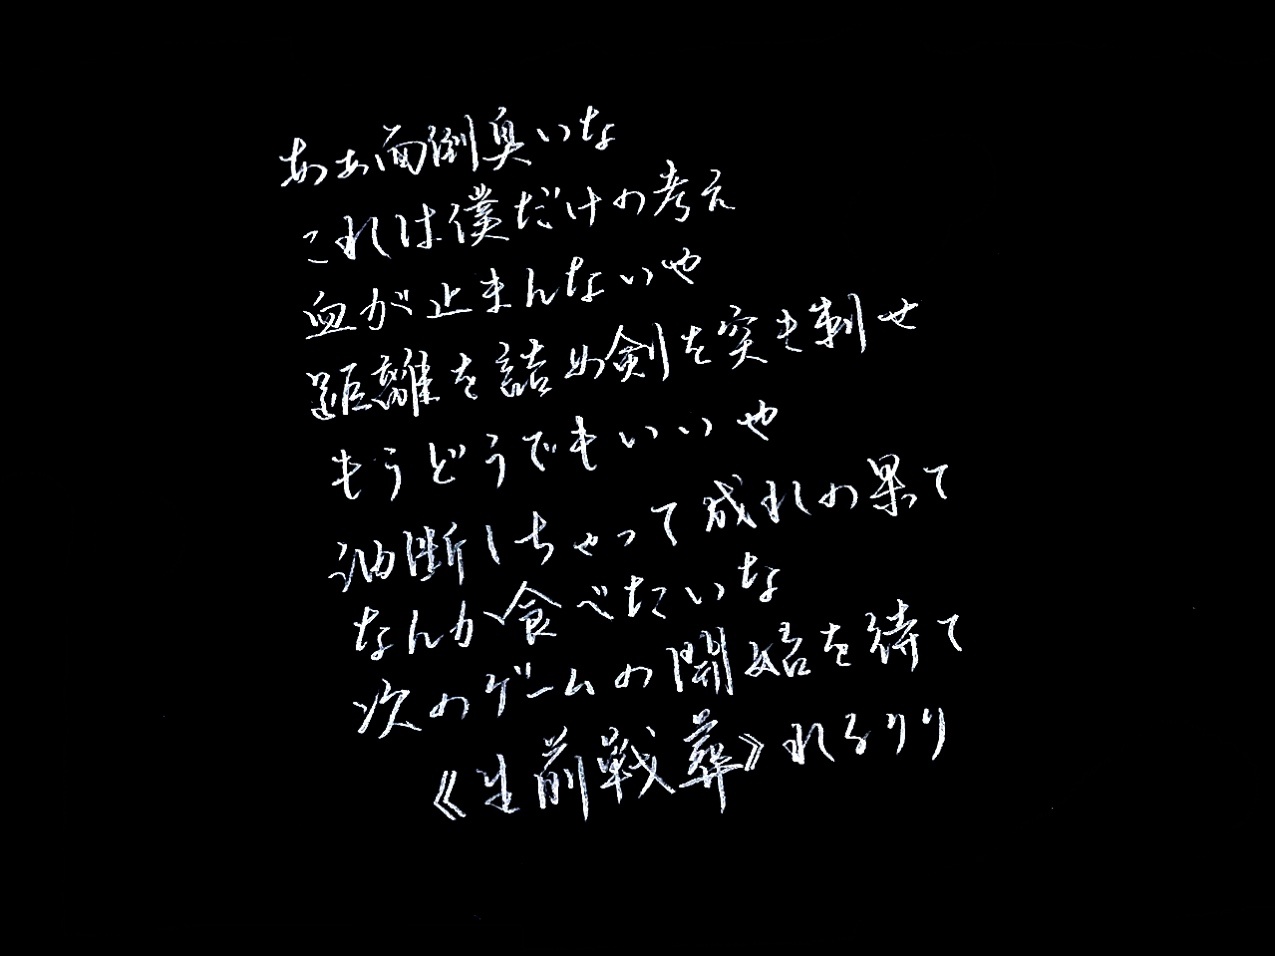 あぁ面倒臭いな
これは僕だけの考え
血が止まんないや
距離を詰め剣を突き刺せ
もうどうでもいいや
油断しちゃって成れの果て
なんか食べたいな
次のゲームの開始を待て
《生前戦葬》れるりり